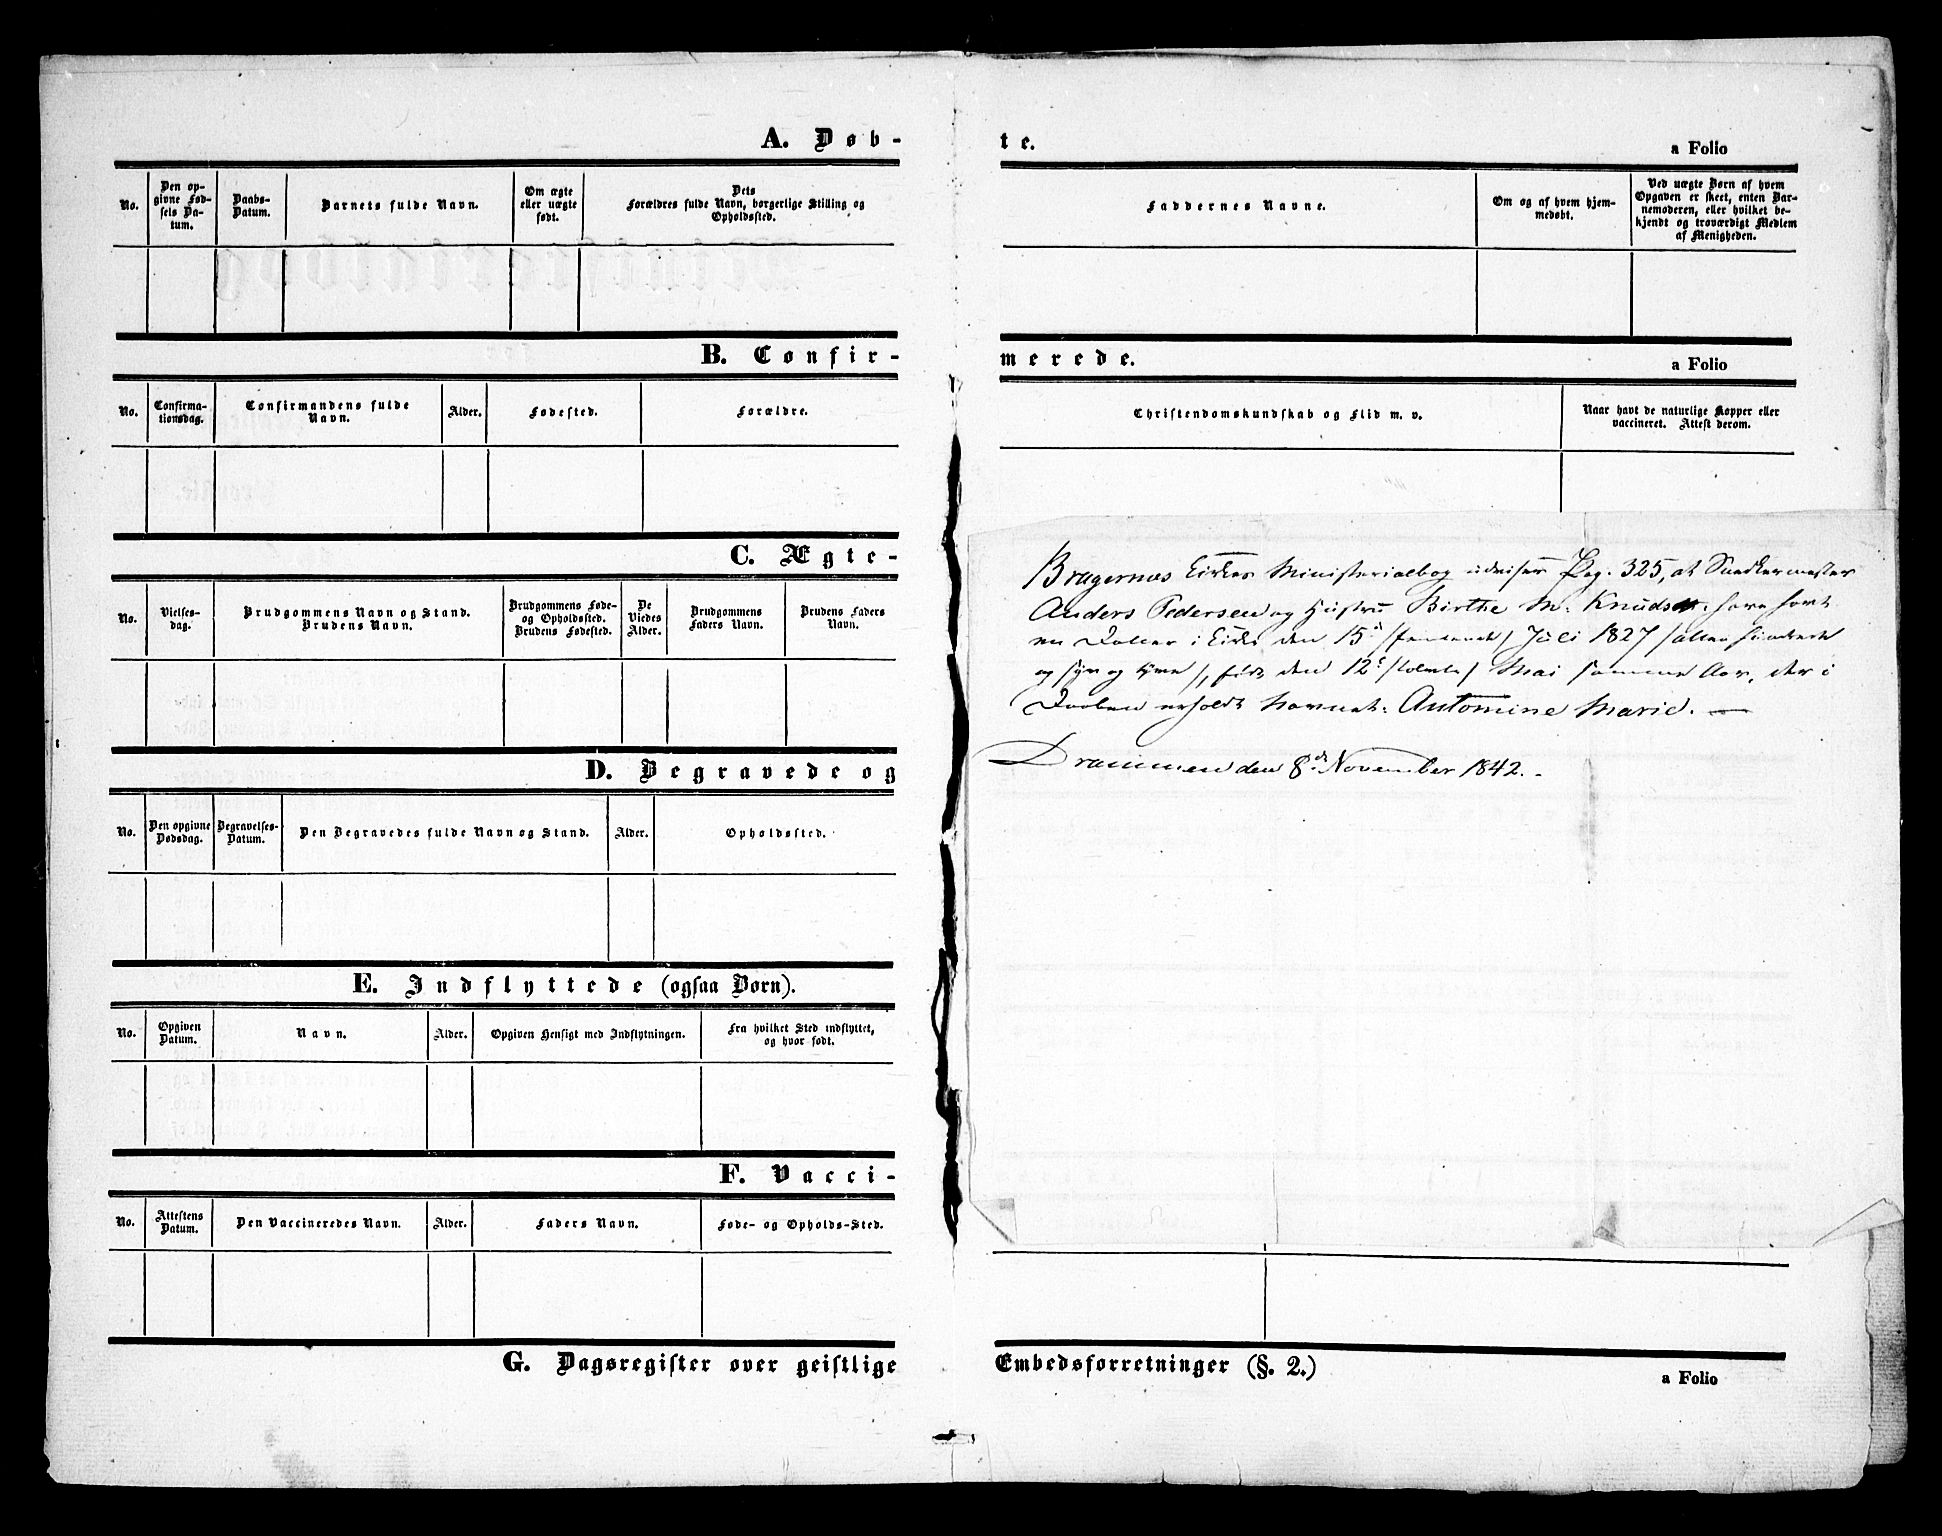 A. Døb-
te.
a Folio
No.
Den op-
givne Fød-
sels Da-
tum.
Daabs-
Datum.
Barnets fulde Navn.
Om ægte
eller uægte
født.
Dets
Forældres fulde Navn, borgerlige Stilling og
Opholdssted.
Faddernes Navne.
Om og af hvem hjem-
medøbt.
Ved uægte Børn af hvem
Opgaven er skeet, enten Bar-
nemoderen, eller hvilket be-
kjendt og troværdigt Medlem
af Menigheden.
B. Confir-
merede.
a Folio
No.
Confirma-
tionsdag.
Confirmandens fulde
Navn.
Alder.
Fødested.
Forældre.
Christendomskundskab og Flid m. v.
Naar havt de naturlige Kopper eller
vaccineret. Attest derom.
C. Ægte-
No.
Vielses-
dag.
Brudgommens Navn og Stand.
Brudens Navn.
Brudgommens Føde-
og Opholdssted.
Brudens Fødested.
De
Viedes
Alder.
Brudgommens
Faders Navn.
Brudens Faders
Navn.
Bragernes Kirkes Ministerialbog udviser Pag. 325, at Snedkermester
Anders Pedersen og Hustru Birthe M. Knudsd.
Daaben i Kirke den 15de /femtende/ Juli 1827 /atten hundrede
og syv og tyve/, født den 12te /tolvte/ Mai samme Aar, der i
Daaben erholdt Navnet: Antomine Marie. —
Drammen den 8de November 1842.
D. Begravede og
No.
Den opgivne
Dødsdag.
Begravelses-
Datum.
Den Begravedes fulde Navn og Stand.
Alder.
Opholdssted.
E. Indflyttede (ogsaa Børn).
No.
Opgiven
Datum.
Navn.
Alder.
Opgiven Hensigt med Indflytningen.
Fra hvilket Sted indflyttet,
og hvor født.
F. Vacci-
No.
Attestens
Datum.
Den Vaccineredes Navn.
Alder.
Faders Navn.
Føde- og Opholds-Sted.
G. Dagsregister over geistlige
Embedsforretninger (§. 2.)
a Folio